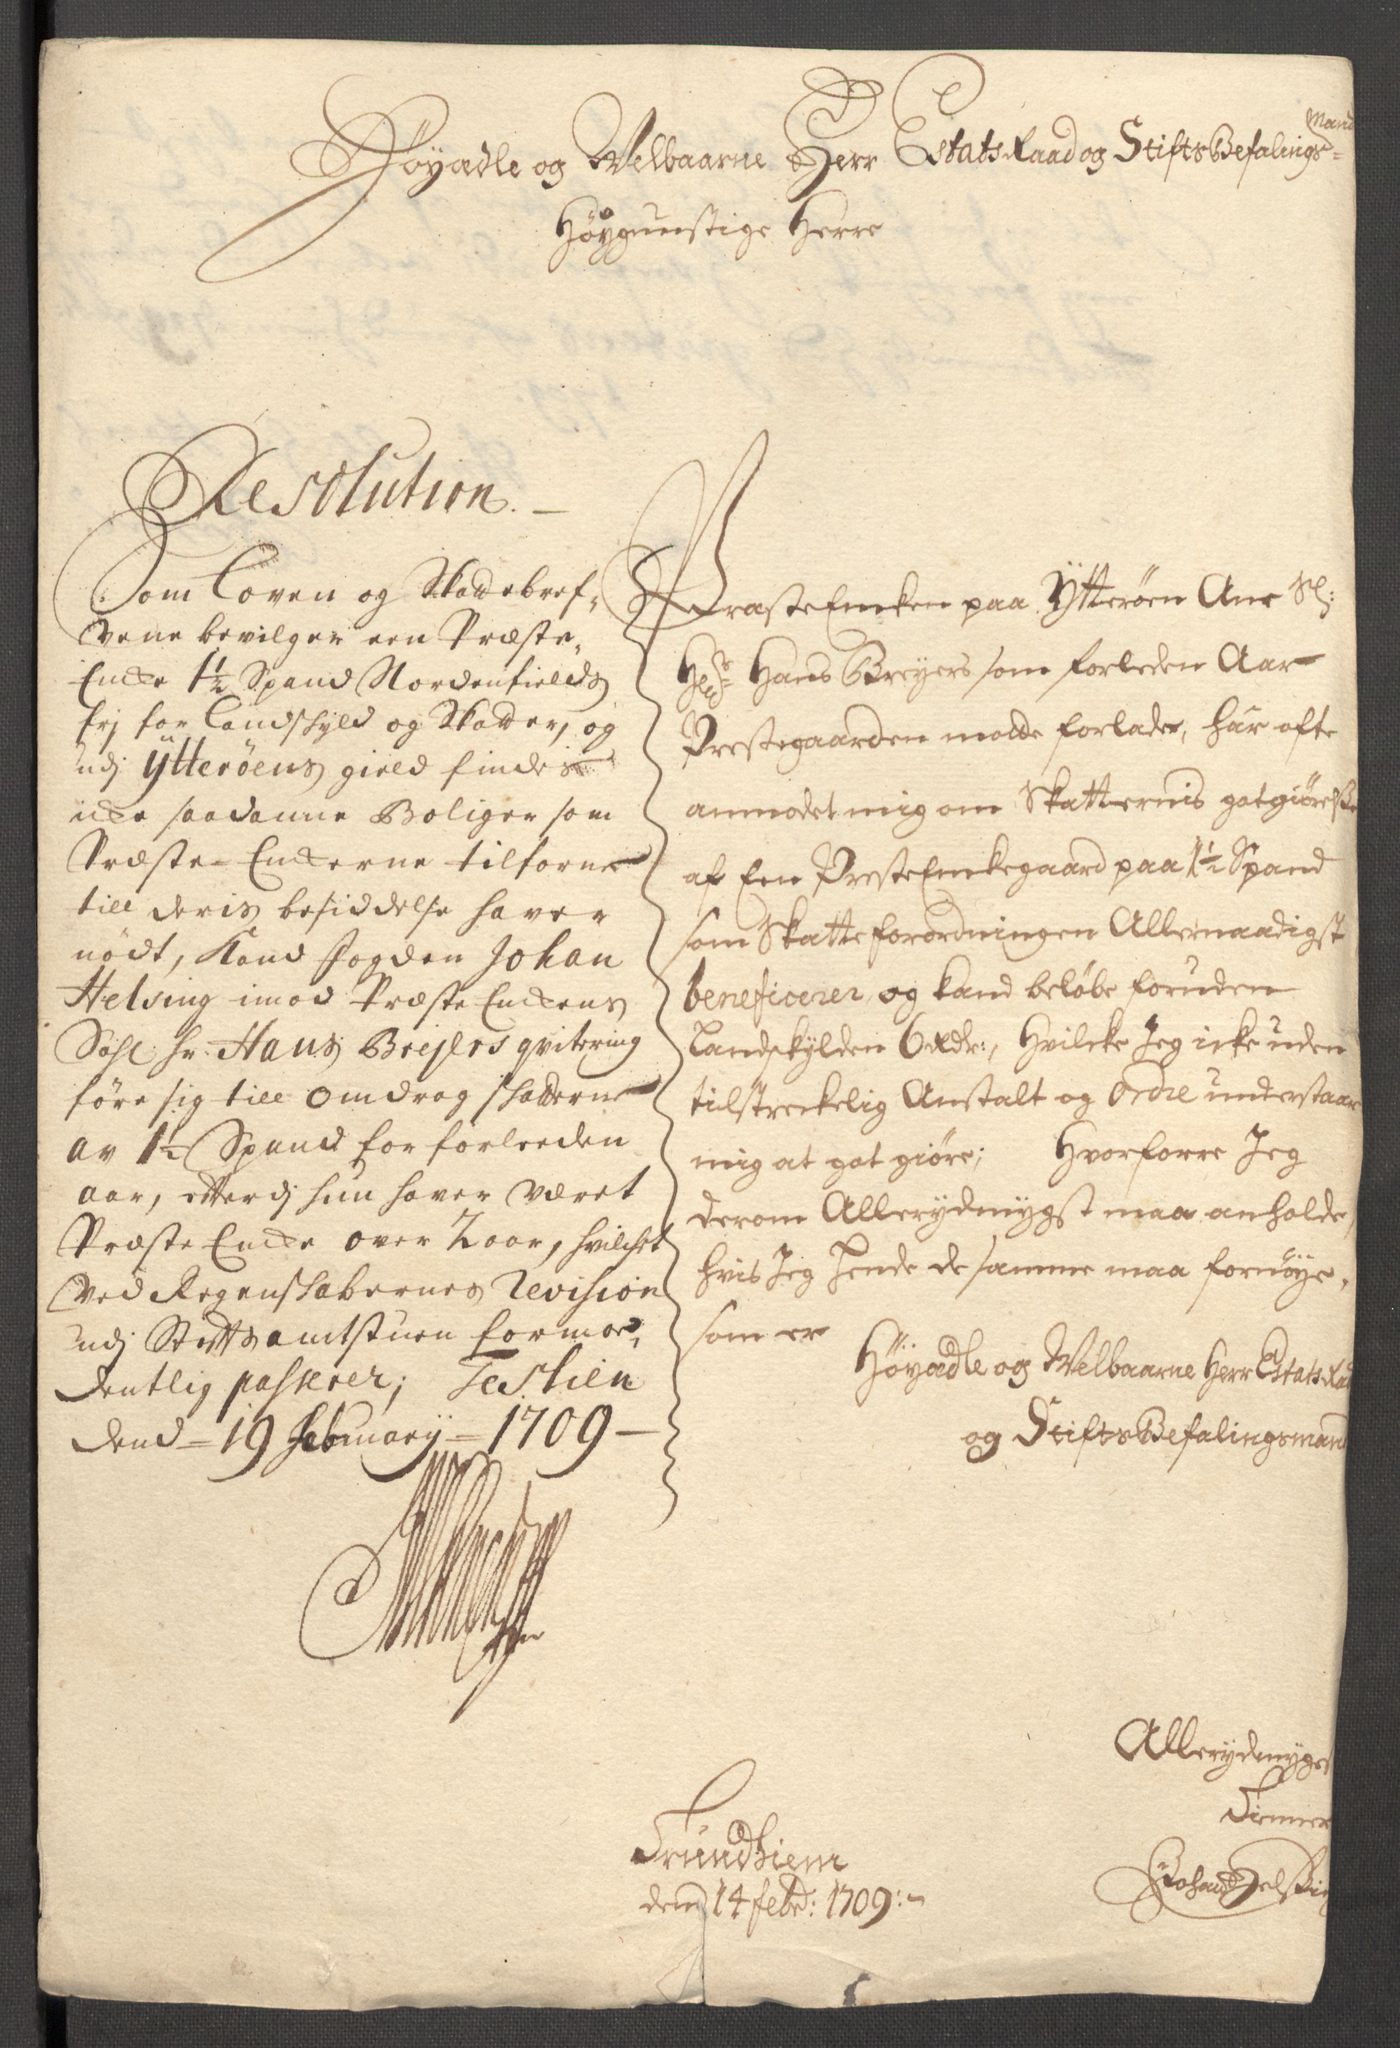 Høyædle og Welbaarne Herr EstatsRaad og StiftsBefalings=
Mand
Høygunstige Herre
Resolution.
Som Loven og Skattebref-
vene bevilger een Præste-
Encke 1½ Spand Nordenfields
frj for Landskyld og Skatter, og
udj Ytterøens gield findes
icke saadanne Boliger som
Præste-Enckerne tilforne
till deris besiddelse haver
nødt, Kand fogden Johan
Helsing imod Præste Enckens
Sahl hr: Hans Brejers qvitering
føre sig till omdrag skatterne
av 1½ Spand for forleeden
aar, efterdj hun haver været
Præste Encke over 2 aar, hvilchet
ved Regenskabernes Revision
udj Stiftsamtstuen formo-
dentlig passerer; Testien
dend 19 February 1709
PræsteEncken paa Ytterøen Ane Sl:
Hr Hans Breyers som forleden Aar
Prestegaarden motte forlade, har ofte
anmodet mig om Skatternis gotgiørelse
af Een PresteEnckegaard paa 1½ Spand
som Skatte forordningen Allernaadigst
beneficerer og kand beløbe foruden
Landskylden 6 Rdr:, Hvilcke Jeg icke uden
tilstreckelig Anstalt og Ordre understaar
mig at got giøre; Hvorforre Jeg
derom Allerydmygst maa anholde,
hvis Jeg Hende de samme maa fornøye,
som er
Høyædle og Welbaarne Herr Estats Raad
og StiftsBefalingsmand
Allerydmygst
Tienner
Johan Helsing
Trundhiem
dend 14 febr: 1709: